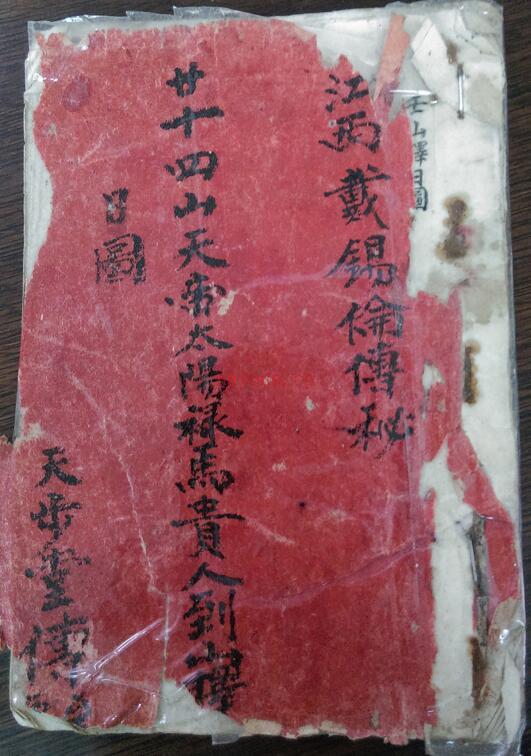 壬山擇日圖
江西戴錫倫傳秘
廿十四山天帝太陽禄馬貴人到山擇
日圖
天步堂傳